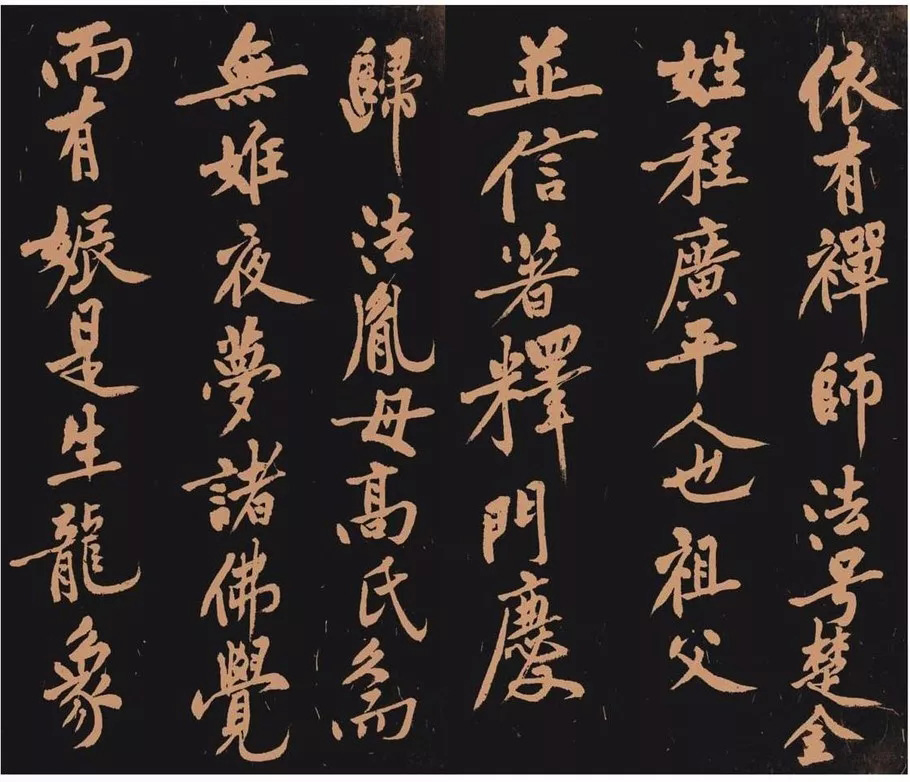 依有禪師法号楚金
姓程廣平人也祖父
並信著釋門慶
歸法胤母髙氏久而
無姙夜夢諸佛覺
而有娠是生龍象